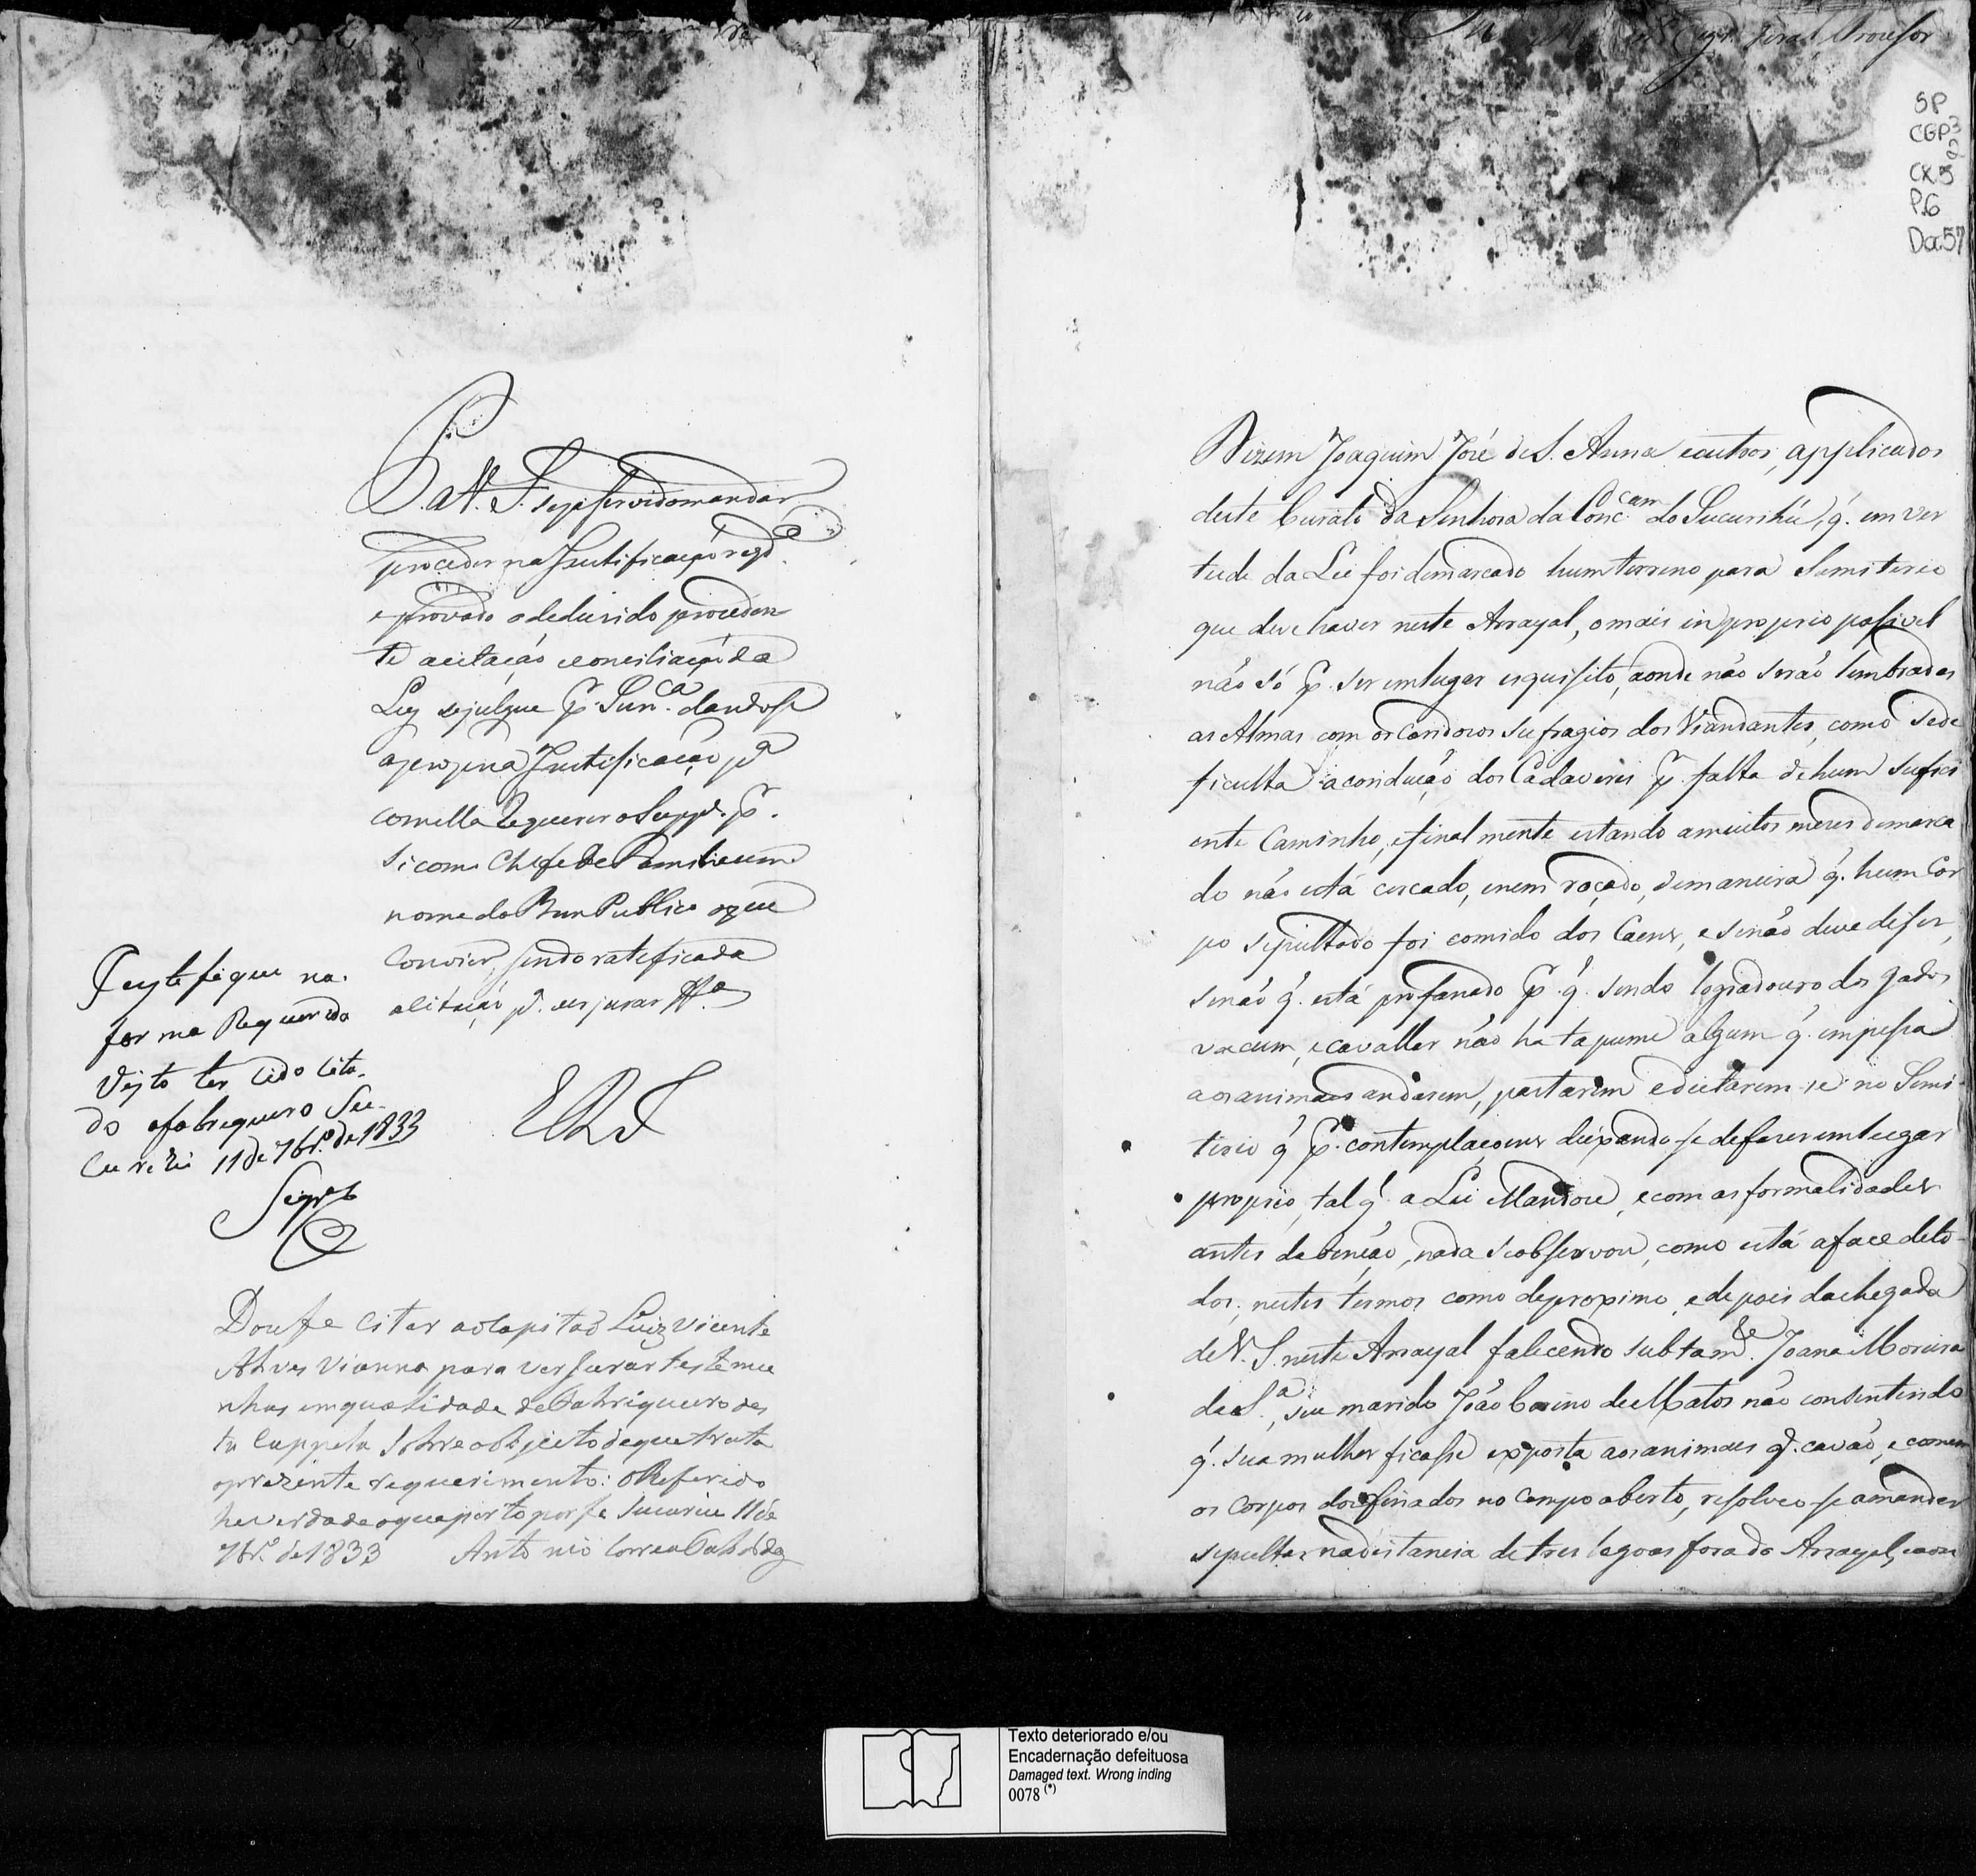 P. a V. S. seja servido mandar
proceder na Justificação reqd.ª
e provado o deduzido preceden
te acitação e conciliação da
Ley se julgue p. Sen.ca dandose
a propria Justificação pª
com ella Requerer o Supp.e p.
si como Chefe de Familia e em
nome do Bem Publico o que
Convier, sendo rateficada
a citação pª ver jurar
E R J
Justefique na
forma Requerida
Visto ter cido cita-
do ofabriqueiro Su-
curiú 11 de 7br.º de 1833
Dou fe citar ao Capitão Luiz Vicente
Alves Vianna para ver jurar testemu
nhas em qualidade de Fabriqueiro des
ta Cappela sobre o objecto de que trata
o prezente requerimento: o Referido
he verdade o que porto por fe Sucuriu 11 de
7br.º de 1833 Antonio Correa
Geral Provisor
SP
CGP3
CX.5
P.6
Doc.57
Dizem Joaquim José de S. Anna e outros, applicados
deste Curato da Senhora da Conc.cam do Sucurihú, q. em ver
tude da Lei foi demarcado hum terreno para Semiterio
que deve haver neste Arrayal, o mais inproprio posivel
não só p. ser em lugar esquisito, aonde não serão lembradas
as Almas com os Candoros sufragios dos Viandantes, como se de
ficulta a condução dos Cadaveres p. falta de hum sufici
ente Caminho, e finalmente estando a muitos meses demarca
do não está cercado, e nem roçado, de maneira q. hum Cor
po sepultado foi comido dos Caens, e se não deve dizer,
senão q. está profanado p. q. sendo logradouro dos gados
vacum, e cavallar não ha tapume algum q. impessa
aos animaes andarem, pastarem e deitarem-se no Semi-
terio q. p. contemplaçoens deixando-se de fazer em lugar
proprio, tal q. a Lei Mandou, e com as formalidades
antes da benção, nada se observou, como está a face de to-
dos; nestes termos como de proximo, e depois da chegada
de V. S. neste Arrayal falecendo subtam.te Joana Moreira
da S.ª, seu marido João de Matos não consentindo
q. sua mulher ficasse exposta aos animaes q. cavão, e comem
os corpos dos finados no Campo aberto, resolveo-se a mandar
sepultar na distancia de tres legoas fora do Arrayal,
Texto deteriorado e/ou
Encadernação defeituosa
Damaged text. Wrong inding
0078 (*)